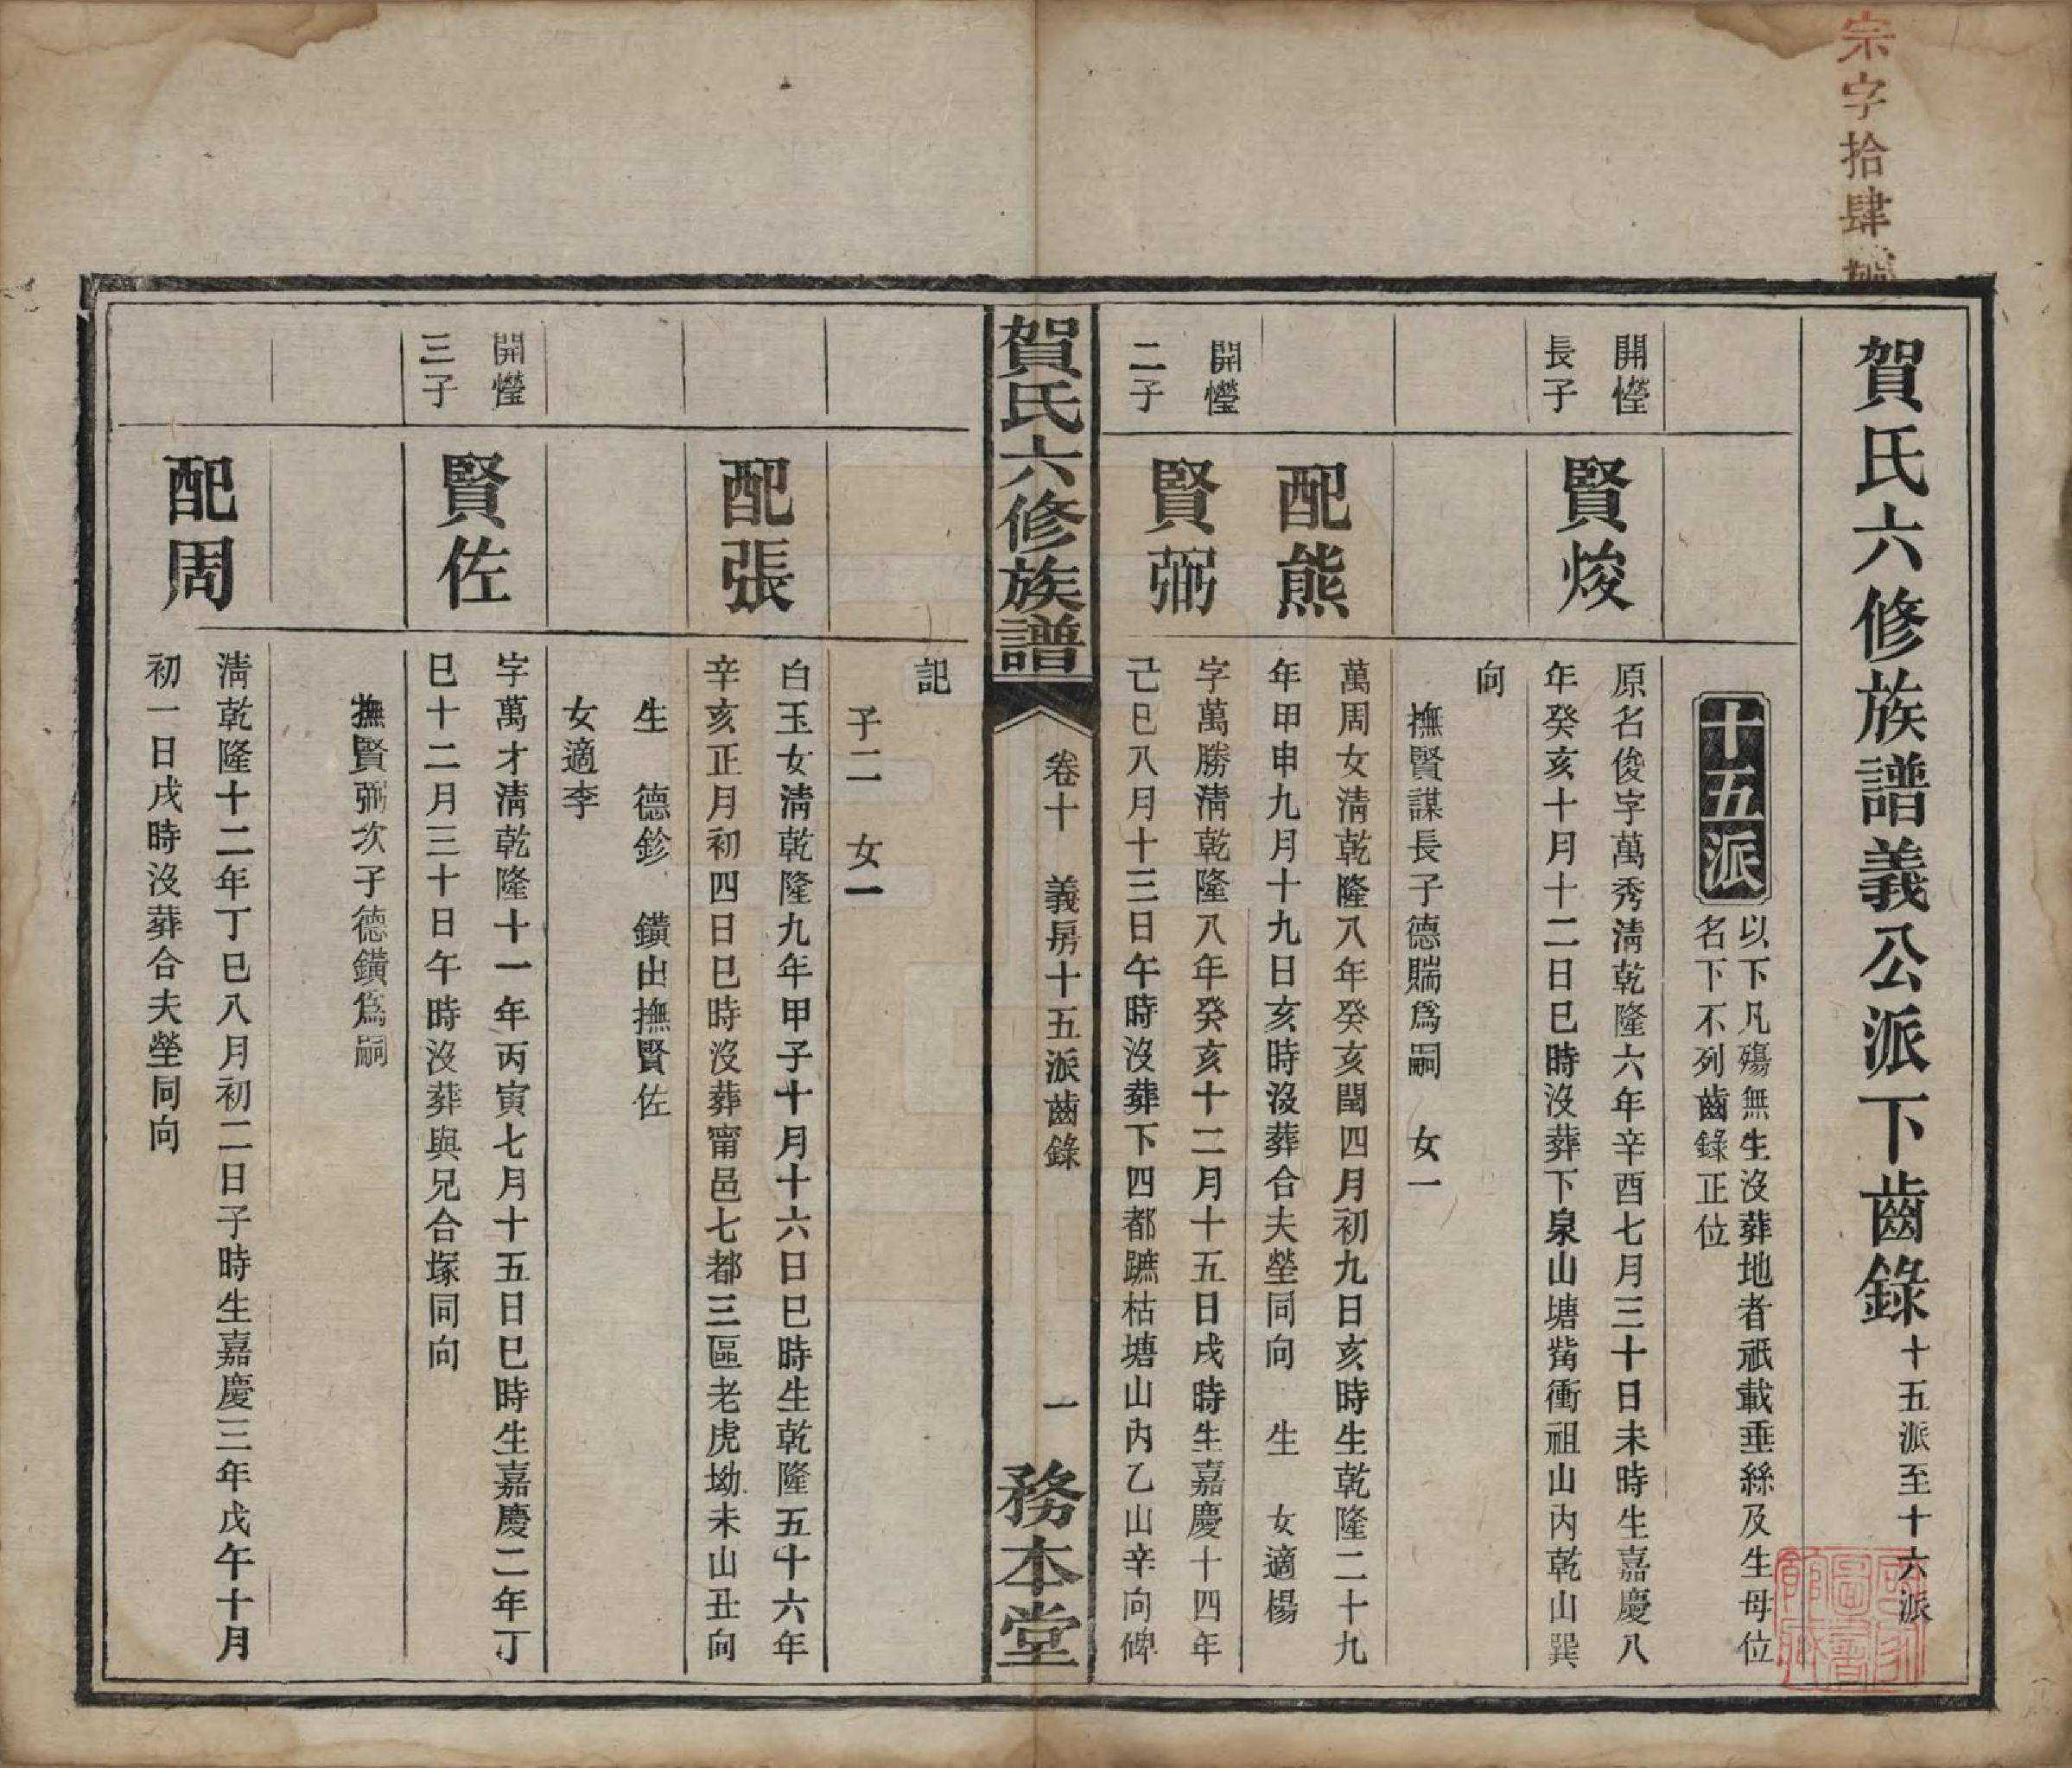 宗字拾肆號
賀氏六修族譜義公派下齒錄 十五派至十六派
十五派
以下凡殤無生沒葬地者祇載垂絲及生母位
名下不列齒錄正位
開慛
長子
賢焌
原名俊字萬秀清乾隆六年辛酉七月三十日未時生嘉慶八
年癸亥十月十二日巳時沒葬下泉山塘觜衝祖山內乾山巽
向
撫賢謀長子德賟為嗣 女一
配熊
萬周女清乾隆八年癸亥閏四月初九日亥時生乾隆二十九
年甲申九月十九日亥時沒葬合夫塋同向 生 女適楊
開慛
二子
賢弼
字萬勝清乾隆八年癸亥十二月十五日戌時生嘉慶十四年
己巳八月十三日午時沒葬下四都蹠枯塘山內乙山辛向碑
賀氏六修族譜
卷十 義房十五派齒錄
一
務本堂
記
子二 女一
配張
白玉女清乾隆九年甲子十月十六日巳時生乾隆五十六年
辛亥正月初四日巳時沒葬甯邑七都三區老虎坳未山丑向
生 德鉁 鐄出撫賢佐
女適李
開慛
三子
賢佐
字萬才清乾隆十一年丙寅七月十五日巳時生嘉慶二年丁
巳十二月三十日午時沒葬與兄合塚同向
撫賢弼次子德鐄為嗣
配周
清乾隆十二年丁巳八月初二日子時生嘉慶三年戊午十月
初一日戌時沒葬合夫塋同向